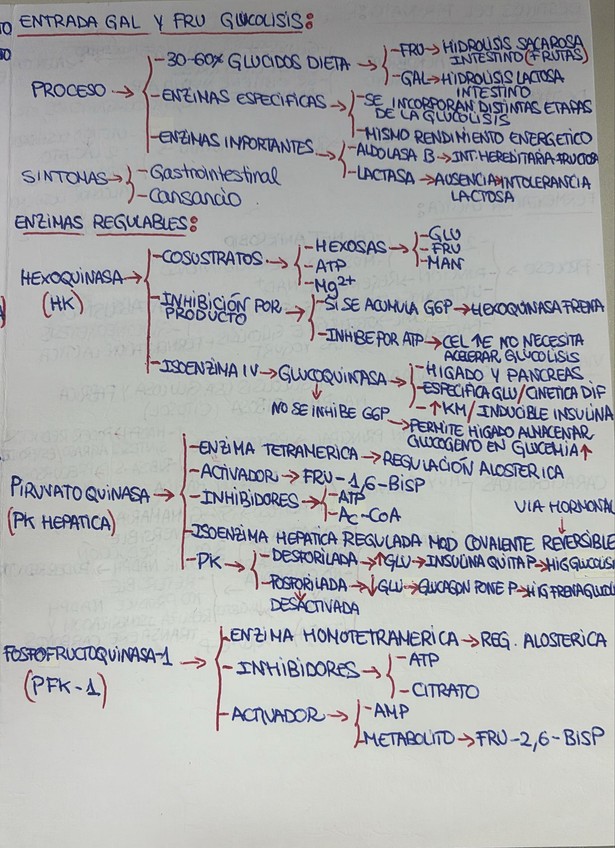 TO ENTRADA GAL Y FRU GLUCOLISIS:
PROCESO → -30-60% GLUCIDOS DIETA → -FRU → HIDROLISIS SACAROSA
INTESTINO (FRUTAS)
-GAL → HIDROLISIS LACTOSA
INTESTINO
-ENZIMAS ESPECIFICAS → -SE INCORPORAN DISTINTAS ETAPAS
DE LA GLUCOLISIS
-MISMO RENDIMIENTO ENERGETICO
-ENZIMAS IMPORTANTES → -ALDOLASA B → INT. HEREDITARIA FRUCTOSA
-LACTASA → AUSENCIA → INTOLERANCIA
LACTOSA
SINTOMAS → -Gastrointestinal
-Cansancio
ENZIMAS REGULABLES:
HEXOQUINASA → -COSUSTRATOS → -HEXOSAS → -GLU
-FRU
-MAN
-ATP
-Mg2+
(HK)
-INHIBICIÓN POR → -SI SE ACUMULA G6P → HEXOQUINASA FRENA
PRODUCTO
-INHIBE POR ATP → CEL ↑E NO NECESITA
ACELERAR GLUCOLISIS
-ISOENZIMA IV → GLUCOQUINASA → -HIGADO Y PANCREAS
-ESPECIFICA GLU/CINETICA DIF
-↑KM/INDUCIBLE INSULINA
↓
NO SE INHIBE G6P → PERMITE HIGADO ALMACENAR
GLUCOGENO EN GLUCEMIA ↑
PIRUVATO QUINASA → -ENZIMA TETRAMERICA → REGULACIÓN ALOSTERICA
(PK HEPATICA)
-ACTIVADOR → FRU-1,6-BISP
-INHIBIDORES → -ATP
-AC-COA
VIA HORMONAL
↓
-ISOENZIMA HEPATICA REGULADA MOD COVALENTE REVERSIBLE
-PK → -DESFORILADA → ↑GLU → INSULINA QUITA P → HIG GLUCOLISI
-FOSFORILADA → ↓GLU → GLUCAGON PONE P → HIG FRENA GLUCOL
DESACTIVADA
FOSFOFRUCTOQUINASA-1 → -ENZIMA HOMOTETRAMERICA → REG. ALOSTERICA
(PFK-1)
-INHIBIDORES → -ATP
-CITRATO
-ACTIVADOR → -AMP
-METABOLITO → FRU-2,6-BISP